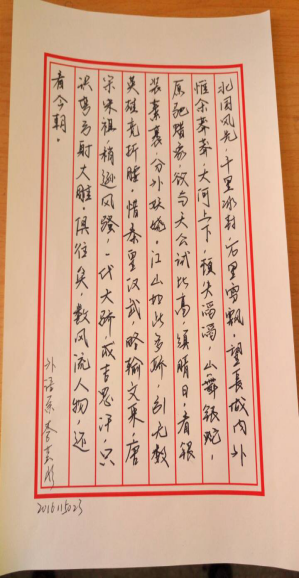 北国风光,千里冰封,万里雪飘,望长城内外
惟余莽莽,大河上下,顿失滔滔,山舞银蛇,
原驰蜡象,欲与天公试比高,须晴日,看银
装素裹,分外妖娆。江山如此多娇,引无数
英雄竞折腰,惜秦皇汉武,略输文采,唐
宗宋祖,稍逊风骚,一代天骄,成吉思汗,只
识弯弓射大雕。俱往矣,数风流人物,还
看今朝。
外语系 李
2016115023